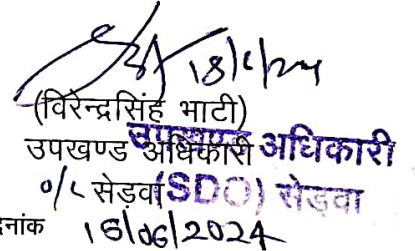 18/6/24
(विरेन्द्रसिंह भाटी)
उपखण्ड अधिकारी
उपखण्ड अधिकारी
सेड़वा
(SDO) सेडवा
नांक 18/06/2024